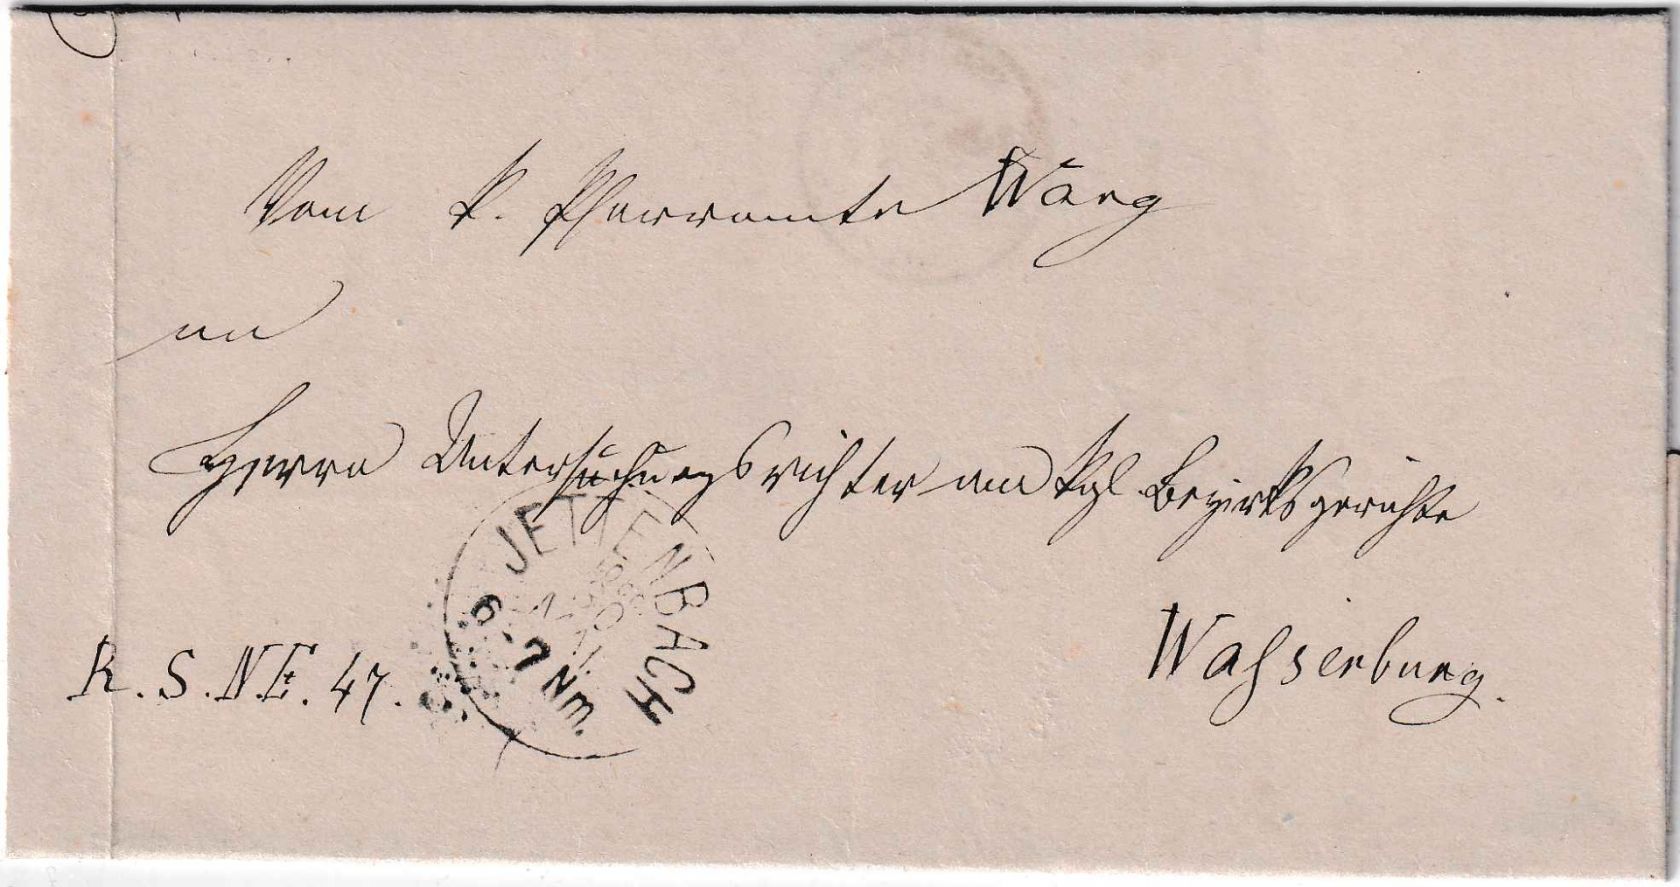 Vom k. Pfarramte Wang
an
Herrn Untersuchungsrichter am kgl Bezirksgerichte
JETTENBACH
6-7 Nm.
Wasserburg.
R. S. N.E. 47.